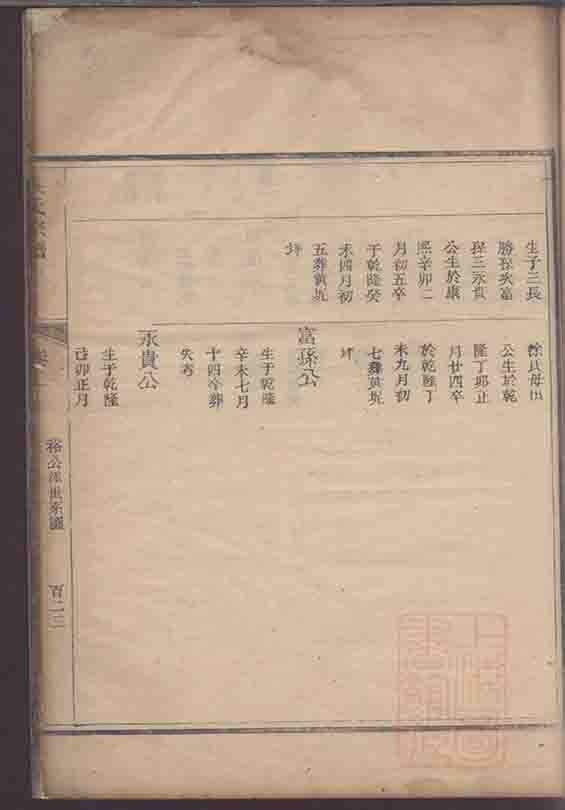 生子三長
勝孫次富
孫三永貴
公生於康
熙辛卯二
月初五卒
于乾隆癸
未四月初
五葬黃坑
坪
徐氏
公生於乾
隆丁卯正
月廿四卒
於乾隆丁
未九月初
七葬黃坑
坪
富孫公
生于乾隆
辛未七月
十四卒葬
失考
永貴公
生于乾隆
己卯正月
裕公派世系圖
百二二